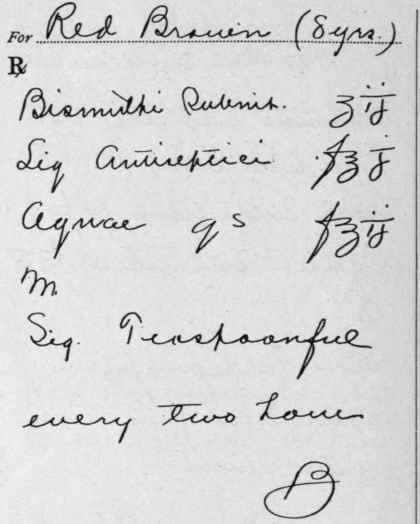 For Red Brown (8 yrs.)
℞
Bismuthi Subnit. ʒ ij
Liq Antiseptici f℥ j
Aquae qs f℥ ij
M
Sig. Teaspoonful
every two hours
B